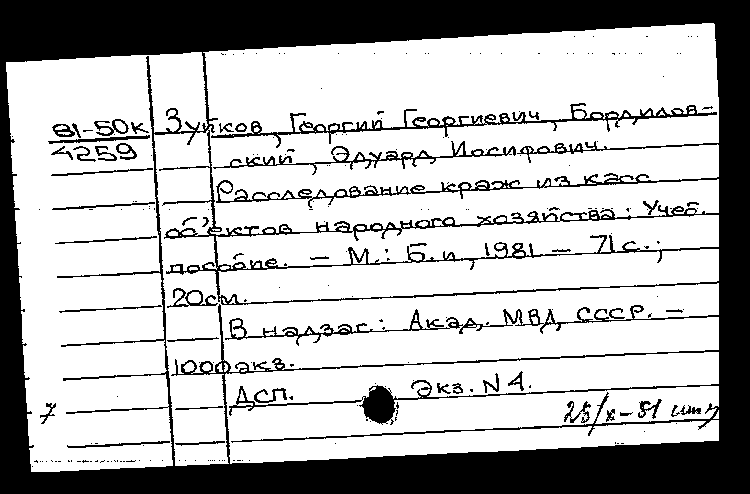 81-50к Зуйков, Георгий Георгиевич, Бордилов-
4259 ский, Эдуард Иосифович.
Расследование краж из касс
об'ектов народного хозяйства: Учеб.
пособие. - М.: Б.и, 1981 - 71с.;
20см.
В надзаг.: Акад. МВД СССР. -
1000экз.
ДСП. Экз. N 4.
7 25/х-81